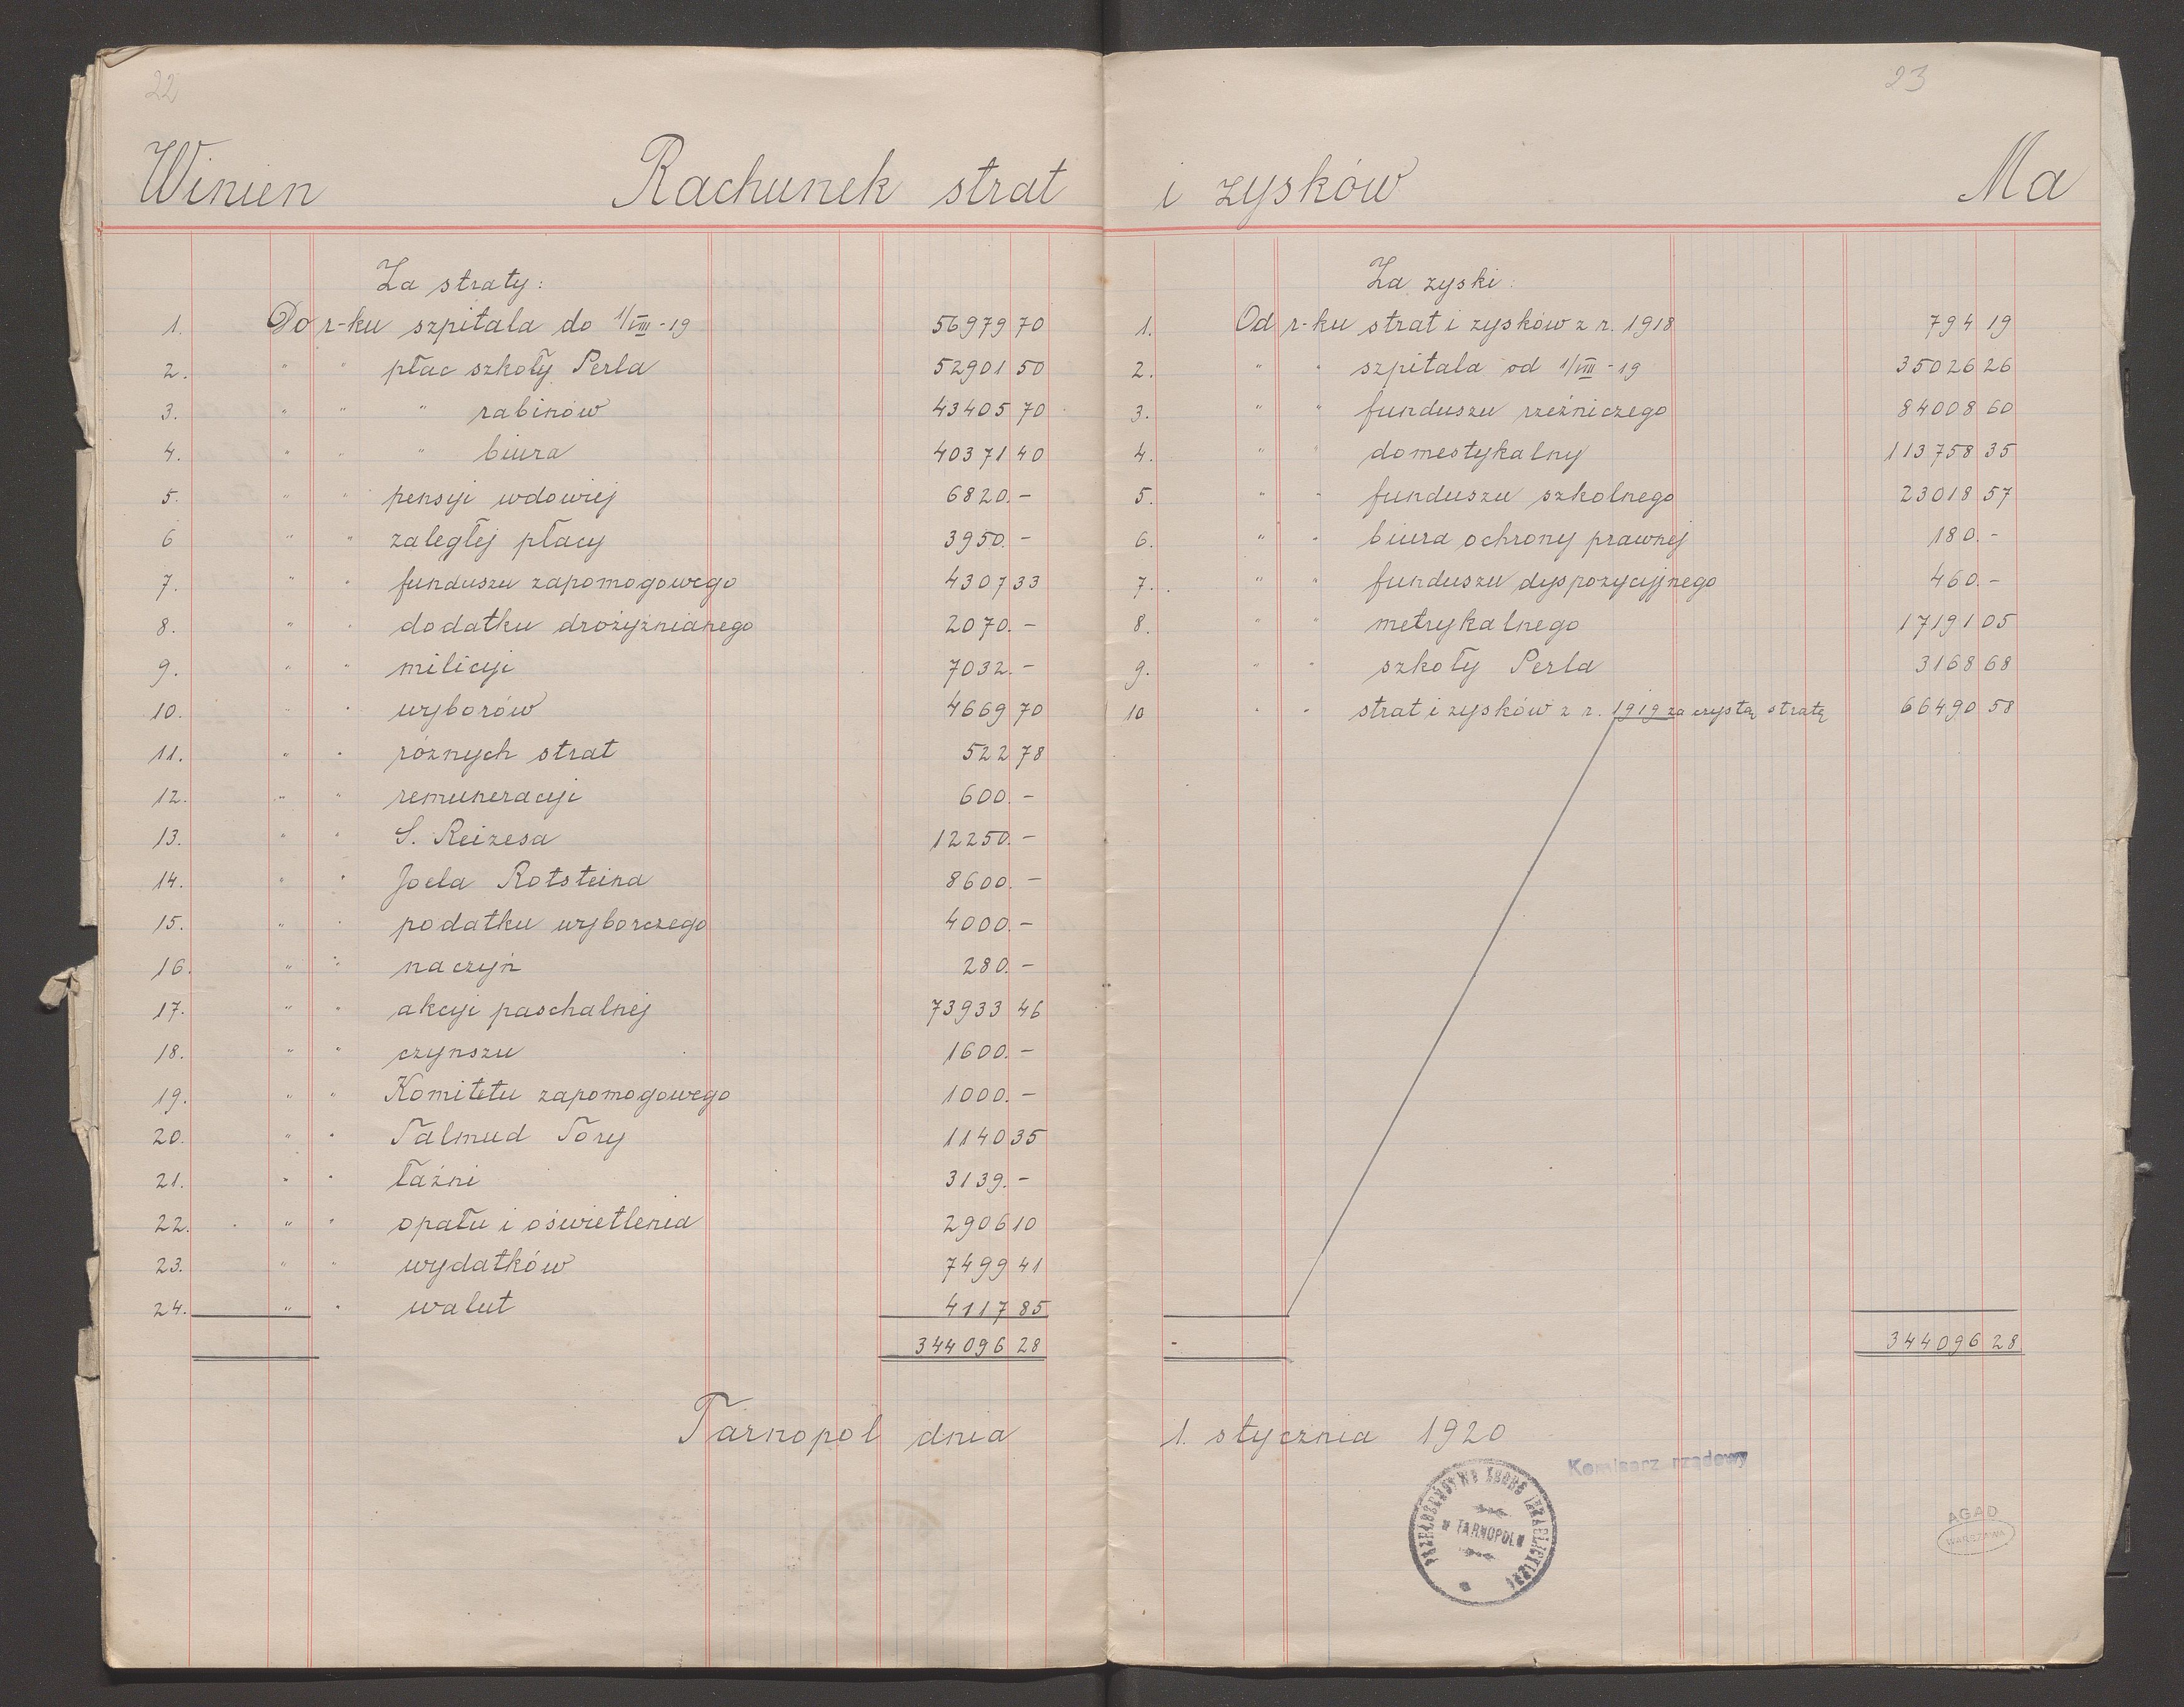 22
Winien Rachunek strat
Za straty:
1. Do r-ku szpitala do 1/VIII-19 56979 70
2. " " płac szkoły Perla 52901 50
3. " " " rabinów 43405 70
4. " " " biura 40371 40
5. " " pensyi wdowiej 6820.-
6 " " zaległej płacy 3950.-
7. " " funduszu zapomogowego 4307 33
8. " " dodatku drożyźnianego 2070.-
9. " " milicyi 7032.-
10. " " wyborów 4669 70
11. " " różnych strat 522 78
12. " " remuneracyi 600.-
13. " " S. Reizesa 12250.-
14. " " Joela Rotsteina 8600.-
15. " " podatku wyborczego 4000.-
16. " " naczyń 280.-
17. " " akcyi paschalnej 73933 46
18. " " czynszu 1600.-
19. " " Komitetu zapomogowego 1000.-
20. " " Talmud Tory 1140 35
21. " " łaźni 3139.-
22. " " opału i oświetlenia 2906 10
23. " " wydatków 7499 41
24. " " walut 4117 85
344096 28
Tarnopol dnia
23
i zysków Ma
Za zyski:
1. Od r-ku strat i zysków z r. 1918 794 19
2. " " szpitala od 1/VIII-19 35026 26
3. " " funduszu rzeźniczego 84008 60
4. " " domestykalny 113758 35
5. " " funduszu szkolnego 23018 57
6. " " biura ochrony prawnej 180.-
7. " " funduszu dyspozycyjnego 460.-
8. " " metrykalnego 17191 05
9. " " szkoły Perla 3168 68
10 " " strat i zysków z r. 1919 za czystą stratę 66490 58
344096 28
1. stycznia 1920
Komisarz rządowy
PRZEŁOŻEŃSTWO ZBORU IZRAELICKIEGO
w TARNOPOLU
AGAD
WARSZAWA